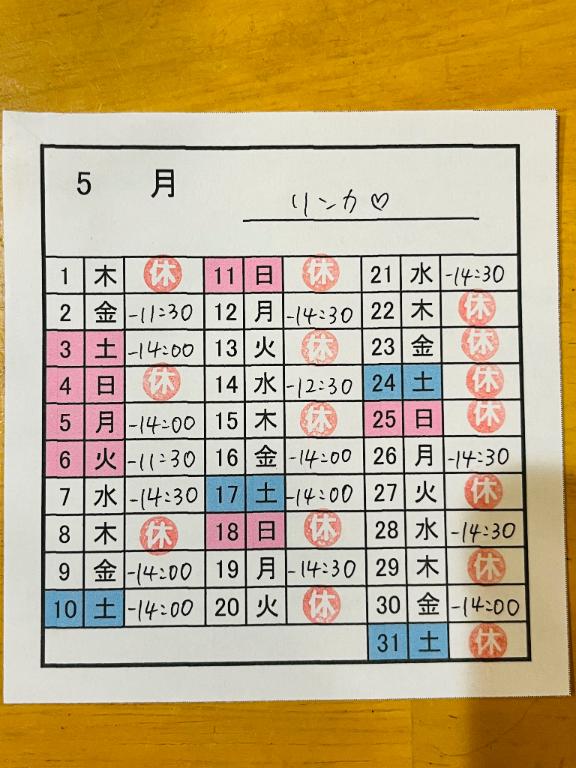 5 月
リンカ♡
1 木 休 11 日 休 21 水 -14:30
2 金 -11:30 12 月 -14:30 22 木 休
3 土 -14:00 13 火 休 23 金 休
4 日 休 14 水 -12:30 24 土 休
5 月 -14:00 15 木 休 25 日 休
6 火 -11:30 16 金 -14:00 26 月 -14:30
7 水 -14:30 17 土 -14:00 27 火 休
8 木 休 18 日 休 28 水 -14:30
9 金 -14:00 19 月 -14:30 29 木 休
10 土 -14:00 20 火 休 30 金 -14:00
31 土 休